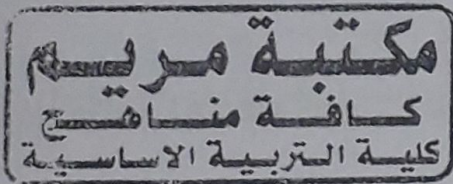 مكتبة مريم
كافة مناهج
كلية التربية الاساسية